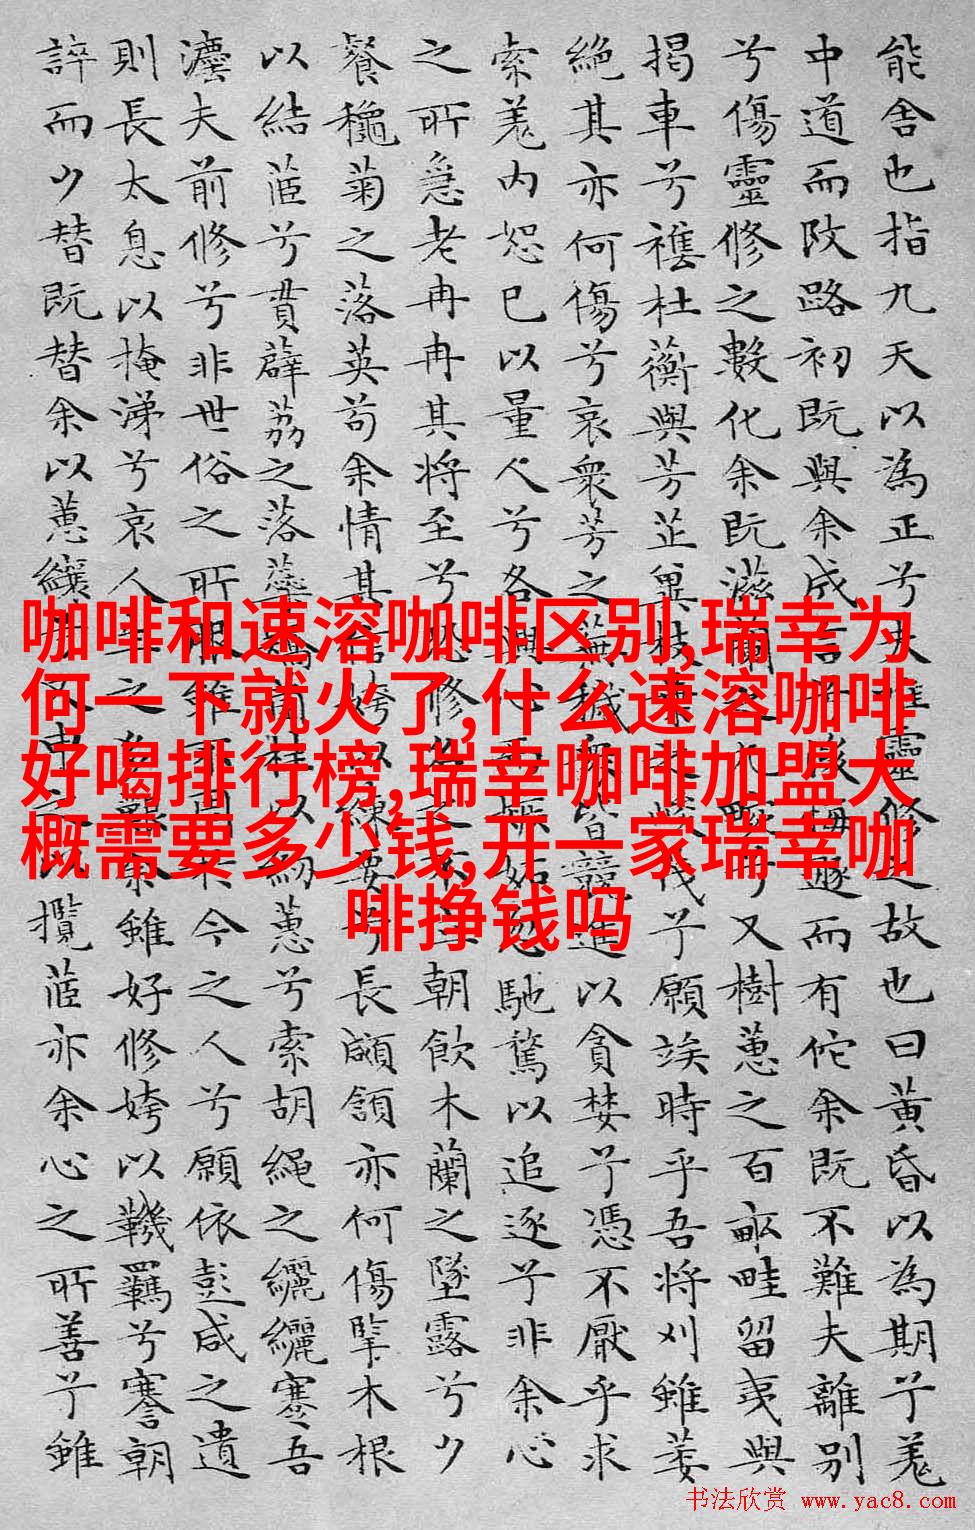 能舍也指九天以為正兮夫唯靈修之故也曰黃昏以為期兮羌
中道而改路初既與余成言兮後悔遯而有佗余既不難夫離別
兮傷靈修之數化余既滋蘭之九畹兮又樹蕙之百畝畦留夷與
揭車兮襍杜蘅與芳芷冀枝葉之峻茂兮願竢時乎吾將刈雖萎
絕其亦何傷兮哀衆芳之蕪穢衆皆競進以貪婪兮憑不厭乎求
索羌内恕已以量人兮各興心而嫉妬忽馳騖以追逐兮非余心
之所急老冉冉其將至兮恐修名之不立朝飲木蘭之墜露兮夕
餐穐菊之落英苟余情其信姱以練要兮長顑頷亦何傷擥木根
以結茝兮貫薜荔之落蕊矯菌桂以紉蕙兮索胡繩之纚纚謇吾
灋夫前修兮非世俗之所服雖不周於今之人兮願依彭咸之遺
則長太息以掩涕兮哀人生之多艱余雖好修姱以鞿羈兮謇朝
誶而夕替既替余以蕙纕兮又申之以攬茝亦余心之所善兮雖
咖啡和速溶咖啡区别,瑞幸为
何一下就火了,什么速溶咖啡
好喝排行榜,瑞幸咖啡加盟大
概需要多少钱,开一家瑞幸咖
啡挣钱吗
书法欣赏 www.yac8.com